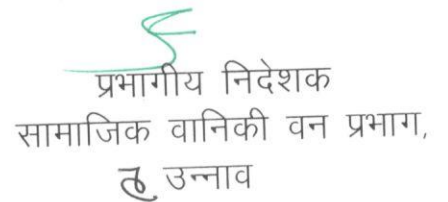 प्रभागीय निदेशक
सामाजिक वानिकी वन प्रभाग,
उन्नाव